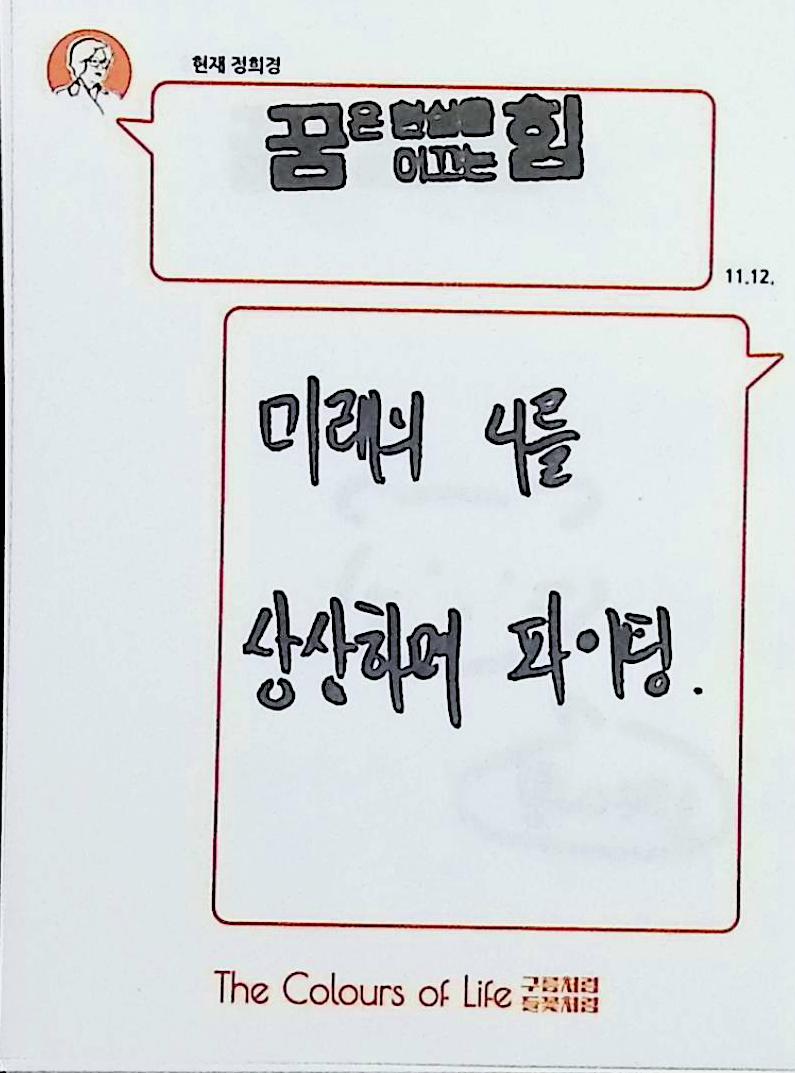 현재 정희경
꿈은 현실을 이끄는 힘
11.12.
미래의 나를
상상하며 파이팅.
The Colours of Life 구름처럼 들꽃처럼